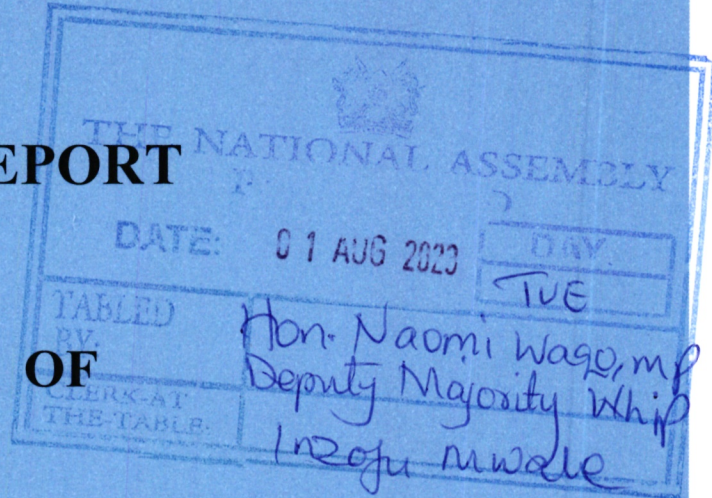 EPORT
THE NATIONAL ASSEMBLY
DATE: 01 AUG 2023 DAY
TUE
TABLED BY: Hon. Naomi Waqo, MP
Deputy Majority Whip
OF
CLERK-AT THE-TABLE: Inzofu Mwale